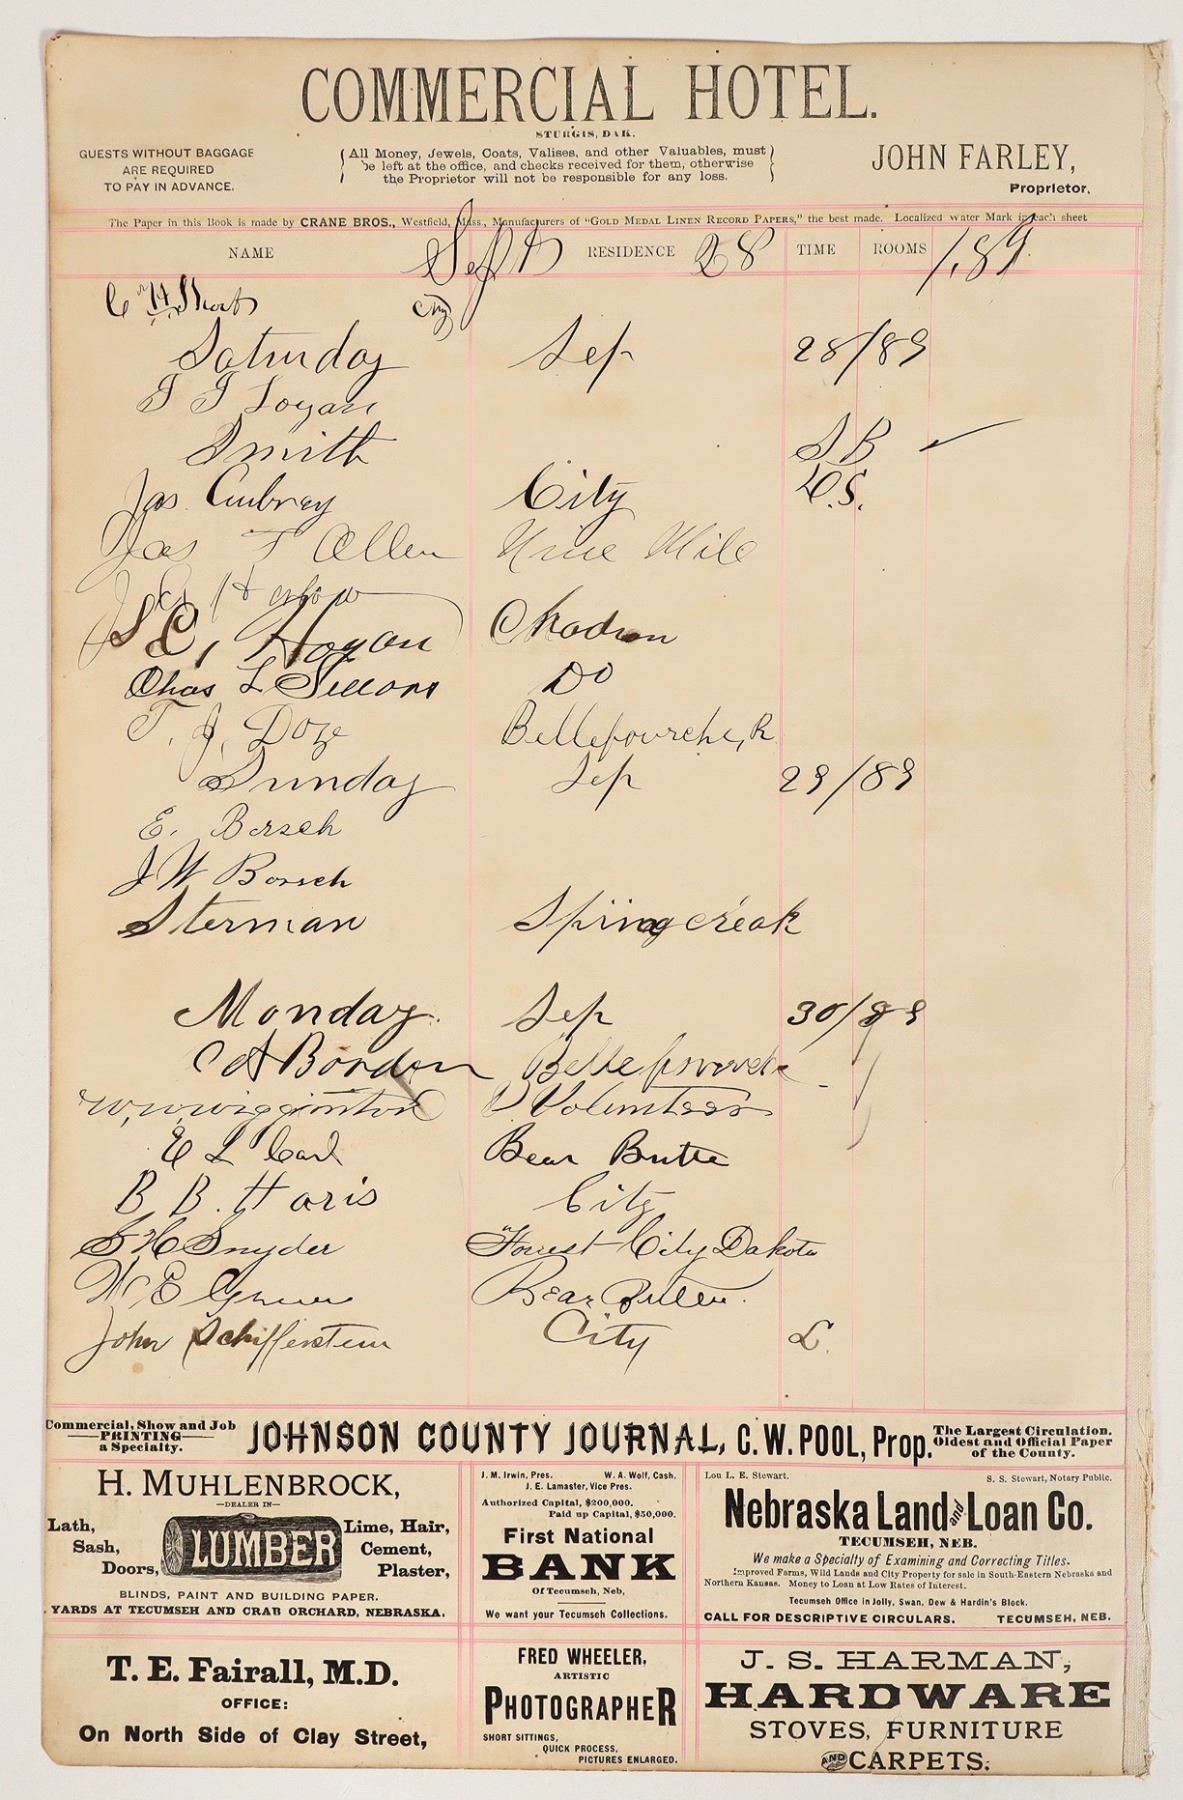 COMMERCIAL HOTEL.
STURGIS, DAK.
GUESTS WITHOUT BAGGAGE
ARE REQUIRED
TO PAY IN ADVANCE.
All Money, Jewels, Coats, Valises, and other Valuables, must
be left at the office, and checks received for them, otherwise
the Proprietor will not be responsible for any loss.
JOHN FARLEY,
Proprietor.
The Paper in this Book is made by CRANE BROS., Westfield, Mass., Manufacturers of "GOLD MEDAL LINEN RECORD PAPERS," the best made. Localized Water Mark in each sheet
NAME Sept RESIDENCE 28 TIME ROOMS 189
C H Short City
Saturday Sep 28/89
T T Logan
Smith S B ✓
Jas Aubrey City L.S.
Jas T Allen Nine Mile
S C, Hogan Chadron
Chas L Do
T. J. Doze Bellefourche, R
Sunday Sep 29/89
E. Borsch
J W Borsch
Sterman Springcreak
Monday. Sep 30/89
C A Borden Bellefourche
W. W. Wigginton Volunteer
E L Carl Bear Butte
B B. Haris City
S H Snyder Forrest City Dakota
W E Bear Butte.
John Schifferstein City L.
Commercial, Show and Job
PRINTING
a Specialty.
JOHNSON COUNTY JOURNAL, C. W. POOL, Prop.
The Largest Circulation.
Oldest and Official Paper
of the County.
H. MUHLENBROCK,
—DEALER IN—
Lath,
Sash,
Doors,
LUMBER
Lime, Hair,
Cement,
Plaster,
BLINDS, PAINT AND BUILDING PAPER.
YARDS AT TECUMSEH AND CRAB ORCHARD, NEBRASKA.
J. M. Irwin, Pres. W. A. Wolf, Cash.
J. E. Lamaster, Vice Pres.
Authorized Capital, $200,000.
Paid up Capital, $50,000.
First National
BANK
Of Tecumseh, Neb,
We want your Tecumseh Collections.
Lou L. E. Stewart. S. S. Stewart, Notary Public.
Nebraska Land and Loan Co.
TECUMSEH, NEB.
We make a Specialty of Examining and Correcting Titles.
Improved Farms, Wild Lands and City Property for sale in South-Eastern Nebraska and
Northern Kansas. Money to Loan at Low Rates of Interest.
Tecumseh Office in Jolly, Swan, Dew & Hardin's Block.
CALL FOR DESCRIPTIVE CIRCULARS. TECUMSEH, NEB.
T. E. Fairall, M.D.
OFFICE:
On North Side of Clay Street,
FRED WHEELER,
ARTISTIC
PHOTOGRAPHER
SHORT SITTINGS,
QUICK PROCESS,
PICTURES ENLARGED.
J. S. HARMAN,
HARDWARE
STOVES, FURNITURE
AND CARPETS.